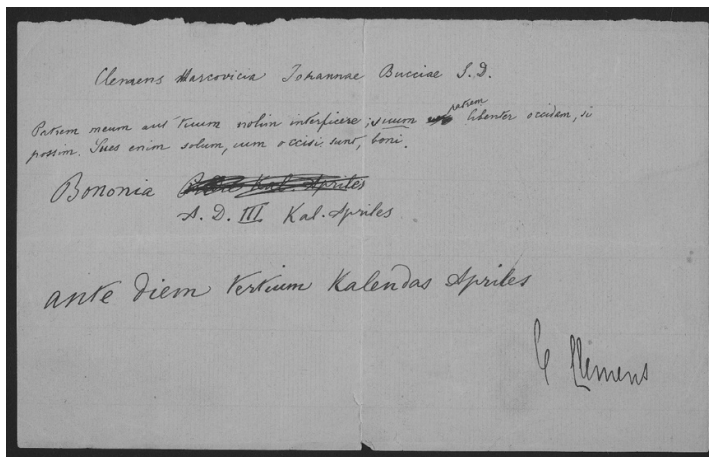 Clemens Marcovicia Iohannae Bucciae S.D.
Patrem meum aut tuum nolim interficere; suum patrem libenter occidam, si
possim. Sues enim solum, cum occisi sunt, boni.
Bononia Kal. Apriles
A. D. III Kal. Apriles
ante diem tertium Kalendas Apriles
Clemens